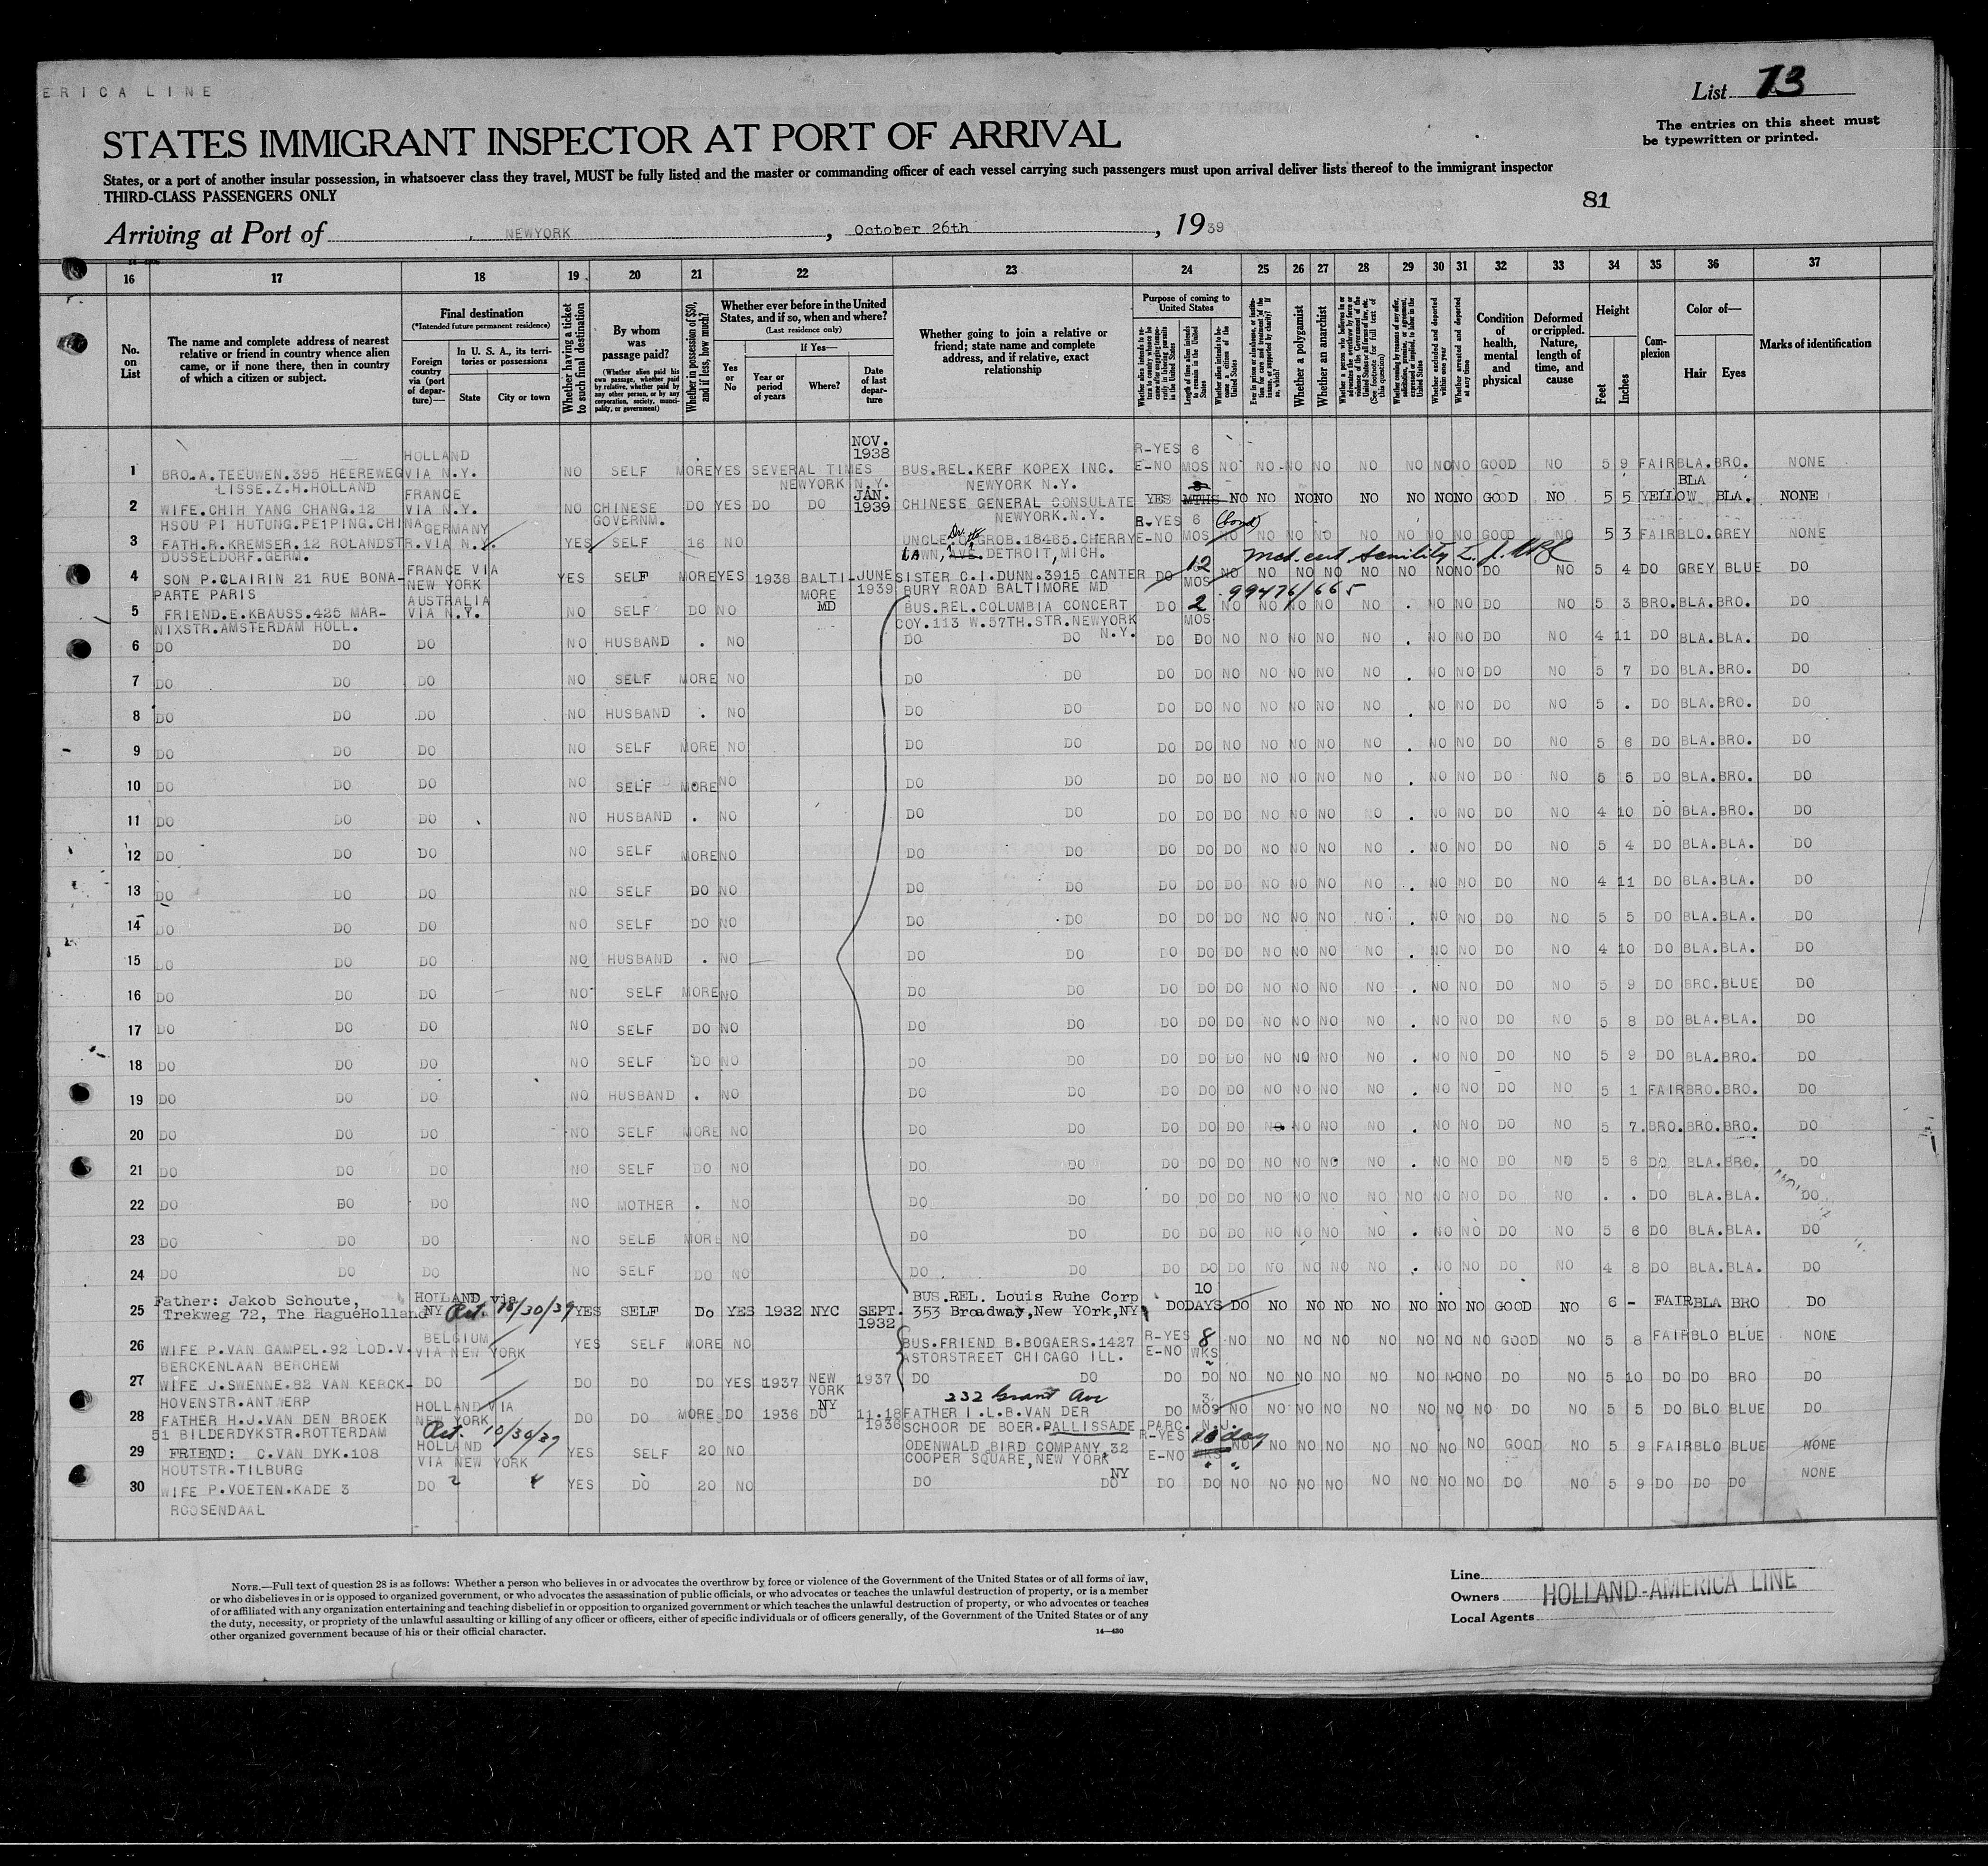 ERICA LINE
List 73
The entries on this sheet must
be typewritten or printed.
STATES IMMIGRANT INSPECTOR AT PORT OF ARRIVAL
States, or a port of another insular possession, in whatsoever class they travel, MUST be fully listed and the master or commanding officer of each vessel carrying such passengers must upon arrival deliver lists thereof to the immigrant inspector
THIRD-CLASS PASSENGERS ONLY
81
Arriving at Port of NEWYORK, October 26th, 1939
16 17 18 19 20 21 22 23 24 25 26 27 28 29 30 31 32 33 34 35 36 37
No. on List
The name and complete address of nearest relative or friend in country whence alien came, or if none there, then in country of which a citizen or subject.
Final destination
(*Intended future permanent residence)
Foreign country via (port of departure)—
In U. S. A., its territories or possessions
State City or town
Whether having a ticket to such final destination
By whom was passage paid?
(Whether alien paid his own passage, whether paid by relative, whether paid by any other person, or by any corporation, society, municipality, or government)
Whether in possession of $50, and if less, how much?
Whether ever before in the United States, and if so, when and where?
(Last residence only)
Yes or No
If Yes—
Year or period of years
Where?
Date of last departure
Whether going to join a relative or friend; state name and complete address, and if relative, exact relationship
Purpose of coming to United States
Whether alien intends to return to country whence he came after engaging temporarily in laboring pursuits in the United States
Length of time alien intends to remain in the United States
Whether alien intends to become a citizen of the United States
Ever in prison or almshouse, or institution for care and treatment of the insane, or supported by charity? If so, which?
Whether a polygamist
Whether an anarchist
Whether a person who believes in or advocates the overthrow by force or violence of the Government of the United States or all forms of law, etc. (See footnote for full text of this question)
Whether coming by reason of any offer, solicitation, promise, or agreement, expressed or implied, to labor in the United States
Whether excluded and deported within one year
Whether arrested and deported at any time
Condition of health, mental and physical
Deformed or crippled. Nature, length of time, and cause
Height
Feet Inches
Complexion
Color of—
Hair Eyes
Marks of identification
1 BRO.A.TEEUWEN.395 HEEREWEG LISSE.Z.H.HOLLAND HOLLAND VIA N.Y. NO SELF MORE YES SEVERAL TIMES NEWYORK N.Y. NOV. 1938 BUS.REL.KERF KOPEX INC. NEWYORK N.Y. R-YES E-NO 6 MOS NO NO NO NO NO NO NO NO GOOD NO 5 9 FAIR BLA. BRO. NONE
2 WIFE.CHIH YANG CHANG.12 HSOU PI HUTUNG.PEIPING.CHINA FRANCE VIA N.Y. NO CHINESE GOVERNM. DO YES DO DO JAN. 1939 CHINESE GENERAL CONSULATE NEWYORK.N.Y. YES MTHS NO NO NO NO NO NO NO NO GOOD NO 5 5 YELLOW BLA BLA. NONE
3 FATH.R.KREMSER.12 ROLANDSTR. DUSSELDORF.GERM. GERMANY VIA N.Y. YES SELF 16 NO UNCLE.O.GROB.18465.CHERRY LAWN, AVE. DETROIT, MICH. R-YES E-NO 6 MOS (bond) NO NO NO NO NO NO NO NO GOOD NO 5 3 FAIR BLO. GREY NONE
Med. cert senility
4 SON P.CLAIRIN 21 RUE BONAPARTE PARIS FRANCE VIA NEW YORK YES SELF MORE YES 1938 BALTIMORE MD JUNE 1939 SISTER C.I.DUNN.3915 CANTERBURY ROAD BALTIMORE MD DO 12 MOS NO NO NO NO NO NO NO NO DO NO 5 4 DO GREY BLUE DO
99476/665
5 FRIEND.E.KRAUSS.425 MARNIXSTR.AMSTERDAM HOLL. AUSTRALIA VIA N.Y. NO SELF DO NO BUS.REL.COLUMBIA CONCERT COY.113 W.57TH.STR.NEWYORK N.Y. DO 2 MOS NO NO NO NO NO . NO NO DO NO 5 3 BRO. BLA. BRO. DO
6 DO DO DO NO HUSBAND . NO DO DO DO DO NO NO NO NO NO . NO NO DO NO 4 11 DO BLA. BLA. DO
7 DO DO DO NO SELF MORE NO DO DO DO DO NO NO NO NO NO . NO NO DO NO 5 7 DO BLA. BRO. DO
8 DO DO DO NO HUSBAND . NO DO DO DO DO NO NO NO NO NO . NO NO DO NO 5 . DO BLA. BRO. DO
9 DO DO DO NO SELF MORE NO DO DO DO DO NO NO NO NO NO . NO NO DO NO 5 6 DO BLA. BRO. DO
10 DO DO DO NO SELF MORE NO DO DO DO DO DO NO NO NO NO . NO NO DO NO 5 5 DO BLA. BRO. DO
11 DO DO DO NO HUSBAND . NO DO DO DO DO DO NO NO NO NO . NO NO DO NO 4 10 DO BLA. BRO. DO
12 DO DO DO NO SELF MORE NO DO DO DO DO DO NO NO NO NO . NO NO DO NO 5 4 DO BLA. BLA. DO
13 DO DO DO NO SELF DO NO DO DO DO DO DO NO NO NO NO . NO NO DO NO 4 11 DO BLA. BLA. DO
14 DO DO DO NO SELF DO NO DO DO DO DO DO NO NO NO NO . NO NO DO NO 5 5 DO BLA. BLA. DO
15 DO DO DO NO HUSBAND . NO DO DO DO DO DO NO NO NO NO . NO NO DO NO 4 10 DO BLA. BLA. DO
16 DO DO DO NO SELF MORE NO DO DO DO DO DO NO NO NO NO . NO NO DO NO 5 9 DO BRO. BLUE DO
17 DO DO DO NO SELF DO NO DO DO DO DO DO NO NO NO NO . NO NO DO NO 5 8 DO BLA. BLA. DO
18 DO DO DO NO SELF DO NO DO DO DO DO DO NO NO NO NO . NO NO DO NO 5 9 DO BLA. BRO. DO
19 DO DO DO NO HUSBAND . NO DO DO DO DO DO NO NO NO NO . NO NO DO NO 5 1 FAIR BRO. BRO. DO
20 DO DO DO NO SELF MORE NO DO DO DO DO DO NO NO NO NO . NO NO DO NO 5 7. BRO. BRO. BRO. DO
21 DO DO DO NO SELF DO NO DO DO DO DO DO NO NO NO NO . NO NO DO NO 5 6 DO BLA. BRO. DO
22 DO DO DO NO MOTHER . NO DO DO DO DO DO NO NO NO NO NO NO NO DO NO . . DO BLA. BLA. DO
23 DO DO DO NO SELF MORE NO DO DO DO DO DO NO NO NO NO . NO NO DO NO 5 6 DO BLA. BLA. DO
24 DO DO DO NO SELF DO NO DO DO DO DO DO NO NO NO NO . NO NO DO NO 4 8 DO BLA. BLA. DO
25 Father: Jakob Schoute, Trekweg 72, The HagueHolland HOLLAND via NY 10/30/39 YES SELF Do YES 1932 NYC SEPT. 1932 BUS.REL. Louis Ruhe Corp 353 Broadway,New York,NY DO 10 DAYS DO NO NO NO NO NO NO NO GOOD NO 6 - FAIR BLA BRO DO
26 WIFE P.VAN GAMPEL.92 LOD.V. BERCKENLAAN BERCHEM BELGIUM VIA NEW YORK YES SELF MORE NO BUS.FRIEND B.BOGAERS.1427 ASTORSTREET CHICAGO ILL. R-YES E-NO 8 WKS NO NO NO NO NO NO NO NO GOOD NO 5 8 FAIR BLO BLUE NONE
27 WIFE J.SWENNE.82 VAN KERCKHOVENSTR.ANTWERP DO DO DO DO YES 1937 NEW YORK NY 1937 DO DO DO DO NO NO NO NO NO NO NO NO DO NO 5 10 DO DO BRO DO
232 Grant Ave
28 FATHER H.J.VAN DEN BROEK 51 BILDERDYKSTR.ROTTERDAM HOLLAND VIA NEW YORK 10/30/39 DO DO MORE DO 1936 DO 11.18 1936 FATHER I.L.B.VAN DER SCHOOR DE BOER.PALLISSADE PARC. N.J. DO 3 MOS NO NO NO NO NO NO NO NO DO NO 5 5 DO BLO BLUE DO
29 FRIEND: C.VAN DYK.108 HOUTSTR.TILBURG HOLLAND VIA NEW YORK YES SELF 20 NO ODENWALD BIRD COMPANY,32 COOPER SQUARE,NEW YORK NY R-YES E-NO 10 day NO NO NO NO NO NO NO NO GOOD NO 5 9 FAIR BLO BLUE NONE
30 WIFE P.VOETEN.KADE 3 ROOSENDAAL DO YES DO 20 NO DO DO DO DO NO NO NO NO NO NO NO NO DO NO 5 9 DO DO DO NONE
NOTE.—Full text of question 28 is as follows: Whether a person who believes in or advocates the overthrow by force or violence of the Government of the United States or of all forms of law,
or who disbelieves in or is opposed to organized government, or who advocates the assassination of public officials, or who advocates or teaches the unlawful destruction of property, or is a member
of or affiliated with any organization entertaining and teaching disbelief in or opposition to organized government or which teaches the unlawful destruction of property, or who advocates or teaches
the duty, necessity, or propriety of the unlawful assaulting or killing of any officer or officers, either of specific individuals or of officers generally, of the Government of the United States or of any
other organized government because of his or their official character.
14—430
Line
Owners HOLLAND-AMERICA LINE
Local Agents